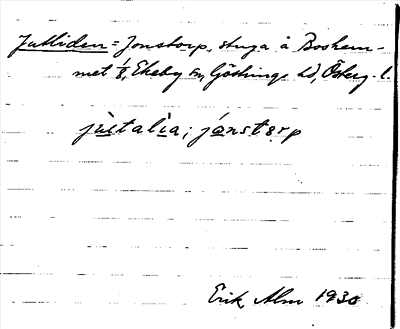 Jutliden = Jonstorp, stuga å Boshem-
met 1/8, Ekeby sn, Göstrings hd, Österg. l.
jùtalìa; jónstərp
Erik Alm 1930